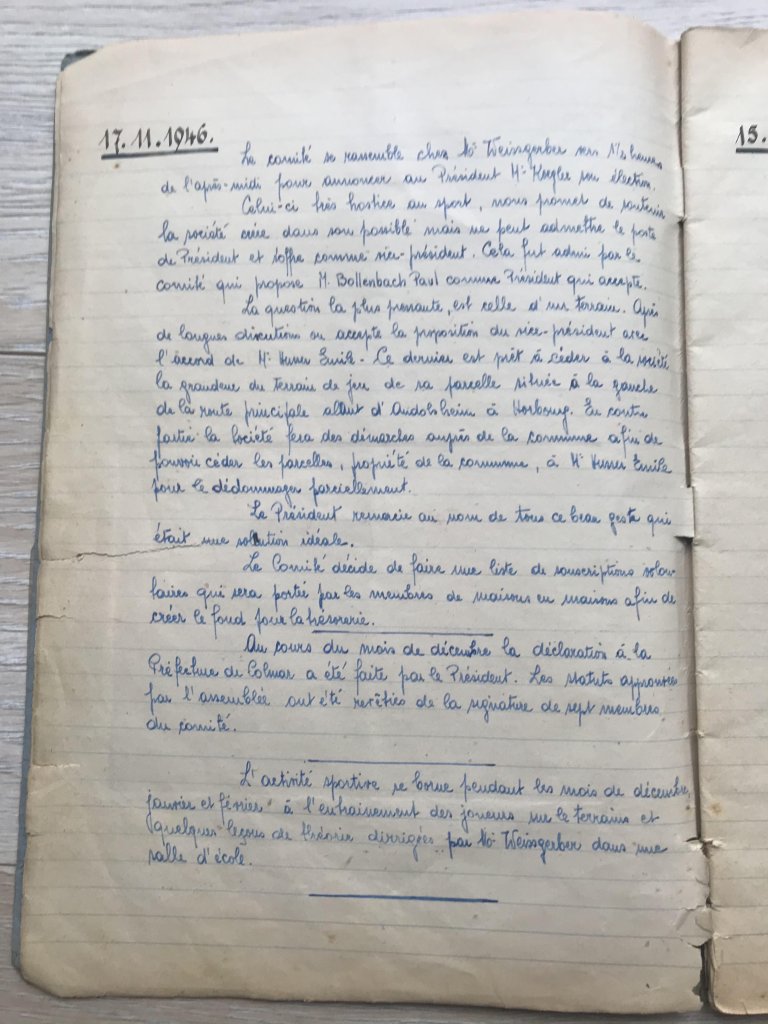 17.11.1946.
Le comité se rassemble chez Mr Weissgerber vers heures
de l'après-midi pour annoncer au Président Mr Kregler son élection.
Celui-ci très hostice au sport, nous promet de soutenir
la société crée dans son possible mais ne peut admettre le poste
de Président et s'offre comme vice-président. Cela fut admi par le
comité qui propose M. Bollenbach Paul comme Président qui accepte.
La question la plus pressante, est celle d'un terrain. Après
de longues discutions on accepte la proposition du vice-président avec
l'accord de Mr Husser Emile - Ce dernier est prêt à céder à la société
la grandeur du terrain de jeu de sa parcelle située à la gauche
de la route principale allant d'Andolsheim à Horbourg. En contre
partie la Société fera des démarches auprès de la commune afin de
pouvoir céder les parcelles, propriété de la commune, à Mr Husser Emile
pour le dédommager parciellement.
Le Président remercie au nom de tous ce beau geste qui
était une solution idéale.
Le Comité décide de faire une liste de souscriptions volon-
taires qui sera portée par les membres de maisons en maisons afin de
créer le fond pour la trésorerie.
Au cours du mois de décembre la déclaration à la
Préfecture de Colmar a été faite par le Président. Les statuts approuvées
par l'assemblée ont été revêtues de la signature de sept membres
du comité.
L'activité sportive se borne pendant les mois de décembre,
janvier et février à l'entrainement des joueurs sur le terrains et
quelques leçons de théorie dirrigées par Mr Weissgerber dans une
salle d'école.
15.